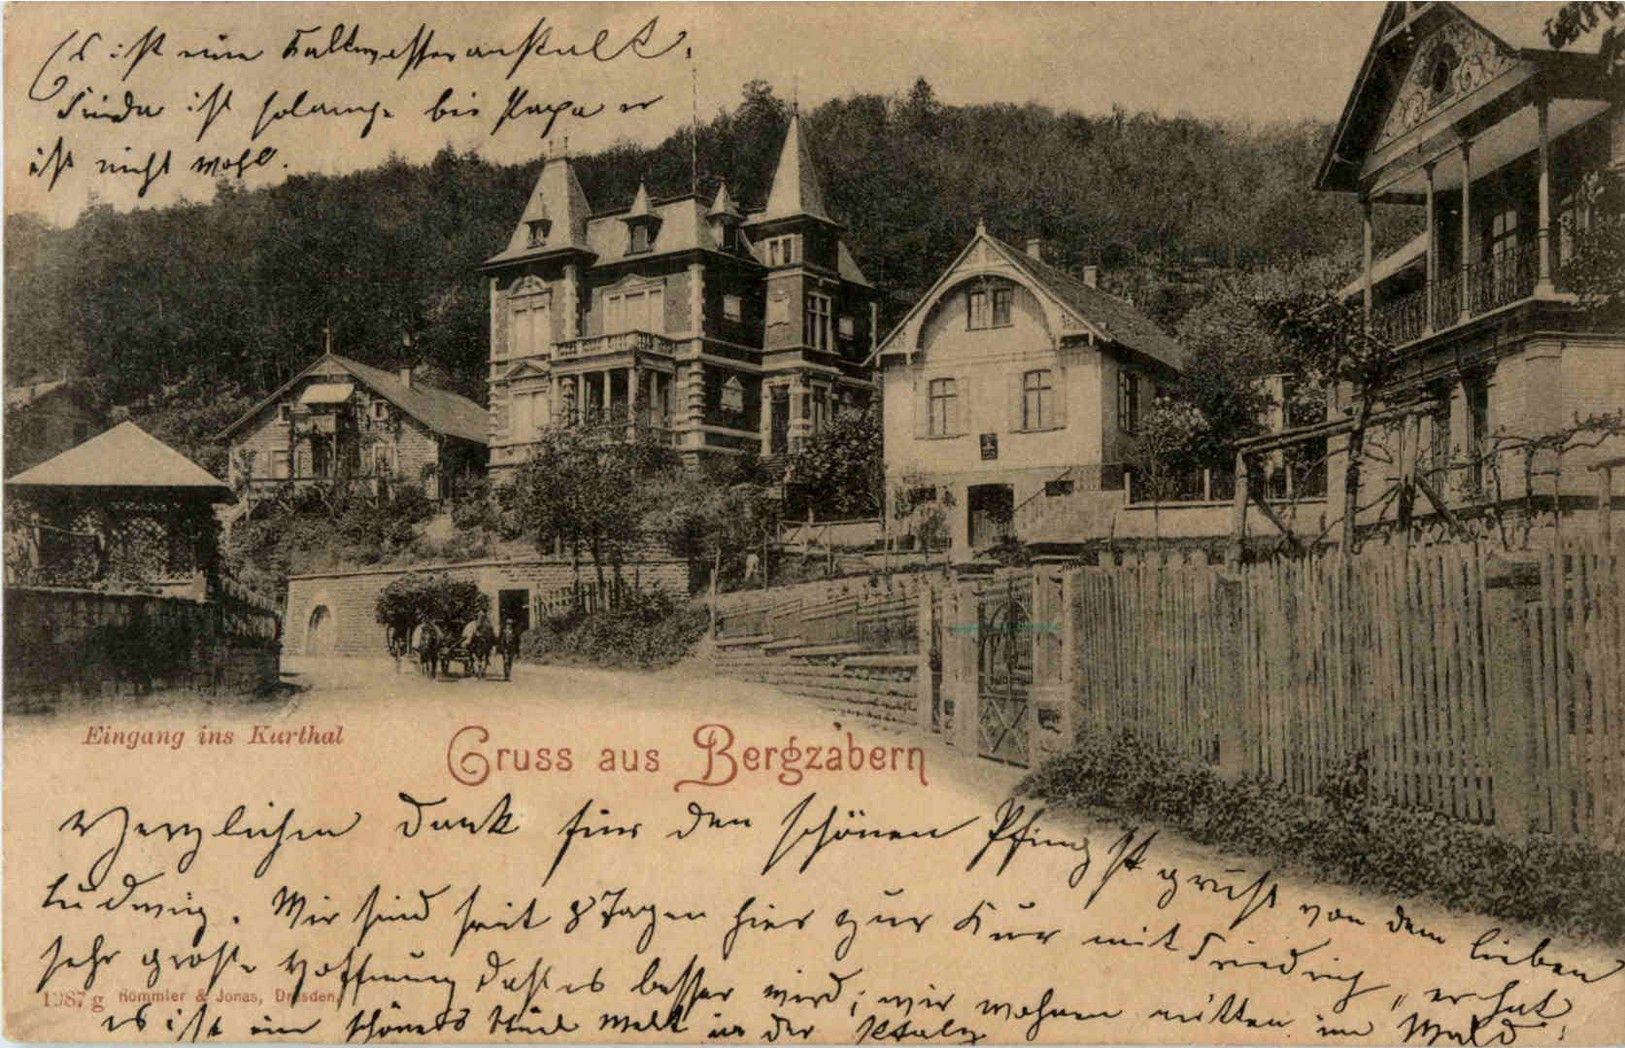 Es ist eine Kaltwasseranstalt.
Linda ist solange bei Papa er
ist nicht wohl.
Eingang ins Kurthal
Gruss aus Bergzabern
Herzlichen Dank für den schönen Pfingstgruß von dem lieben
Ludwig. Wir sind seit 8 Tagen hier zur Kur mit Friedrich, er hat
sehr große Hoffnung daß es besser wird; wir wohnen mitten im Wald;
1987 g Römmler & Jonas, Dresden.
es ist ein schönes Stück Welt in der Pfalz